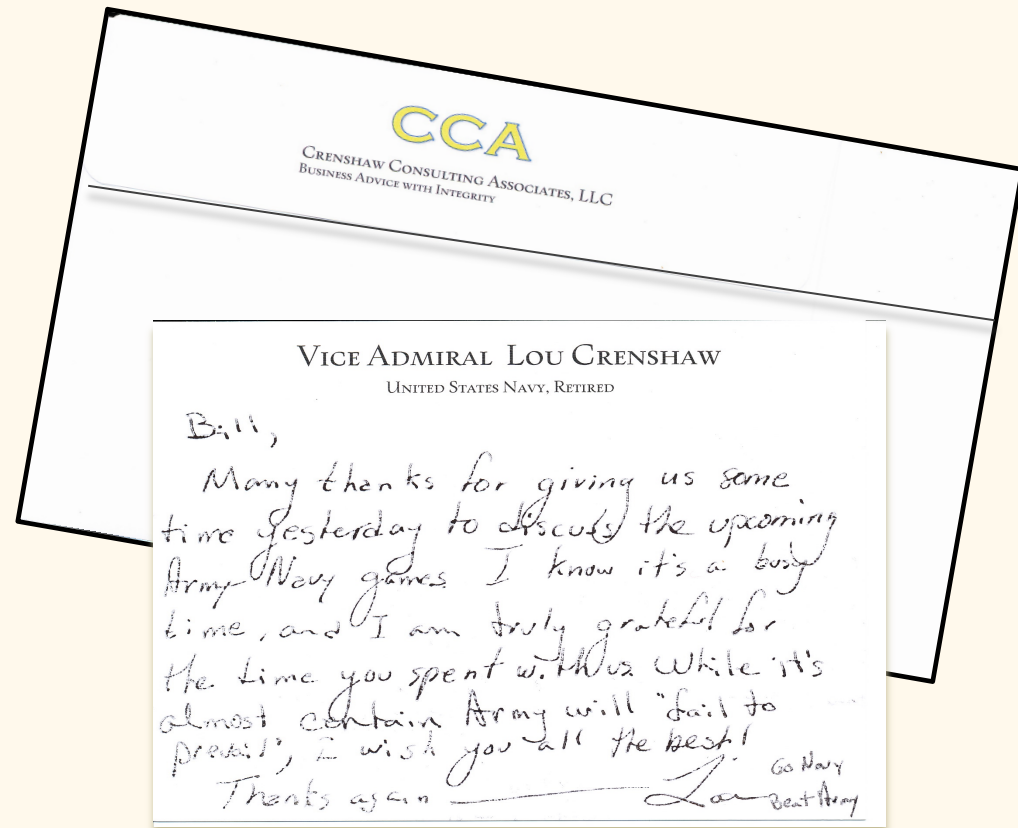 CCA
CRENSHAW CONSULTING ASSOCIATES, LLC
BUSINESS ADVICE WITH INTEGRITY
VICE ADMIRAL LOU CRENSHAW
UNITED STATES NAVY, RETIRED
Bill,
Many thanks for giving us some
time yesterday to discuss the upcoming
Army-Navy games. I know it's a busy
time, and I am truly grateful for
the time you spent with us. While it's
almost certain Army will "fail to
prevail", I wish you all the best!
Thanks again — Lou
Go Navy
Beat Army